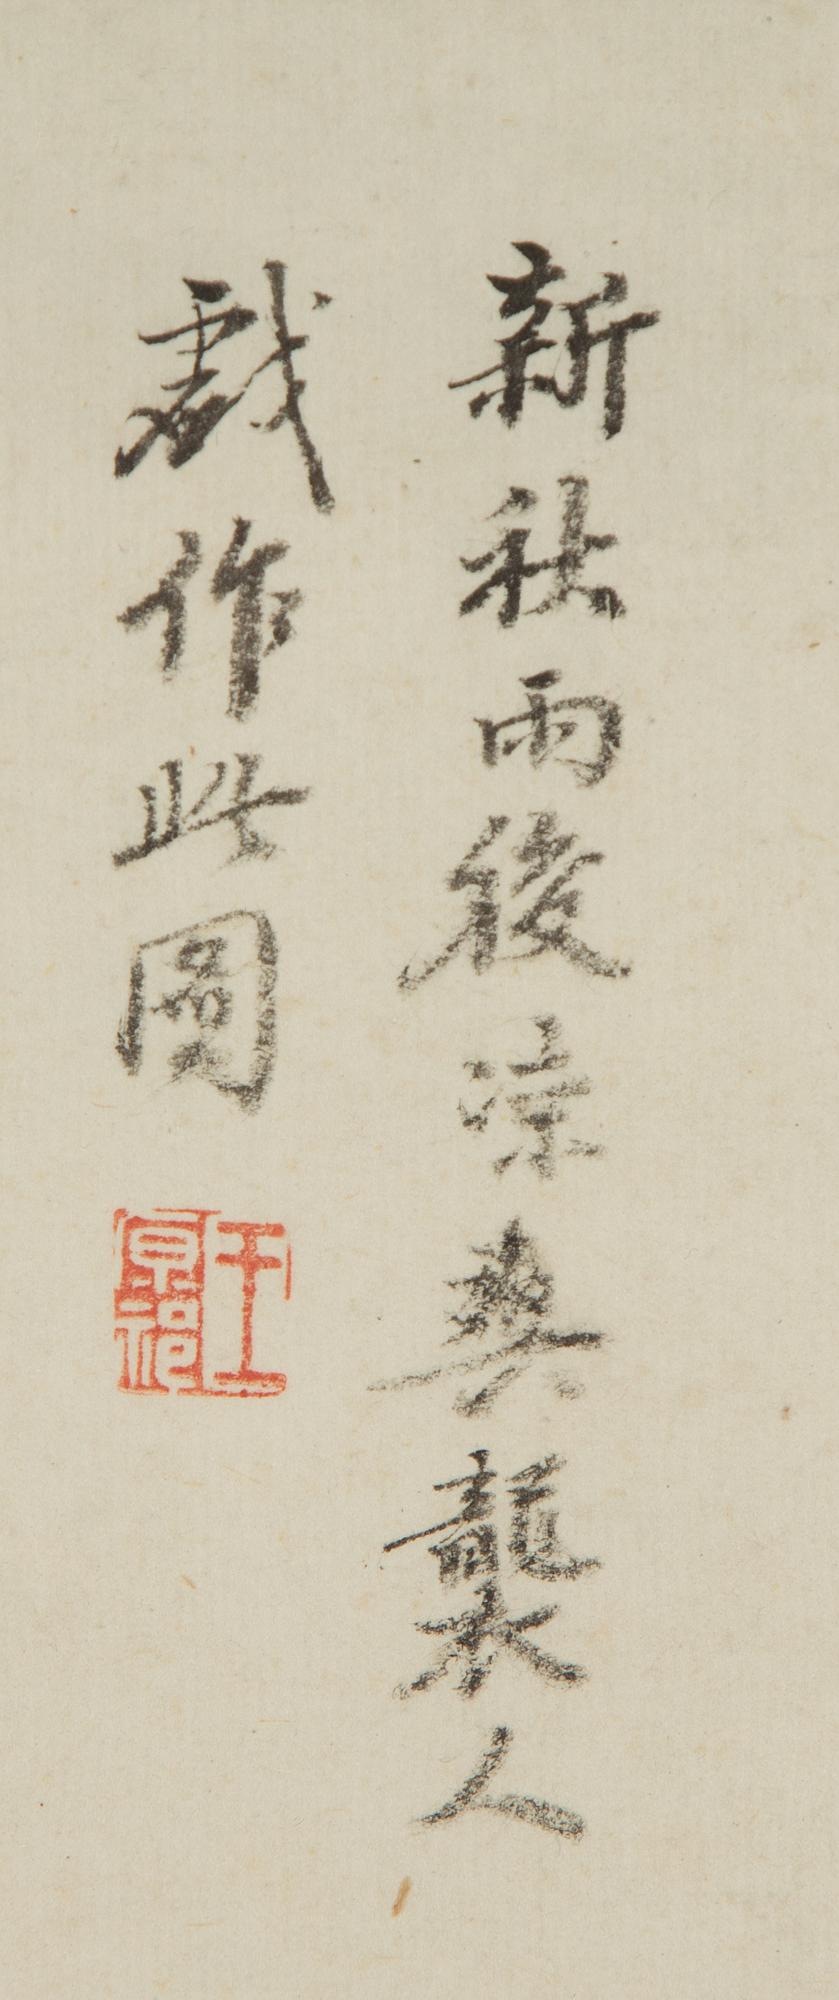 新秋雨後涼爽襲人
戲作此圖
王原祁